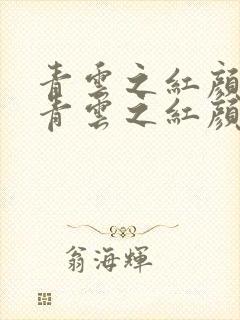 青雲之紅顏
青雲之紅顏
翁海輝